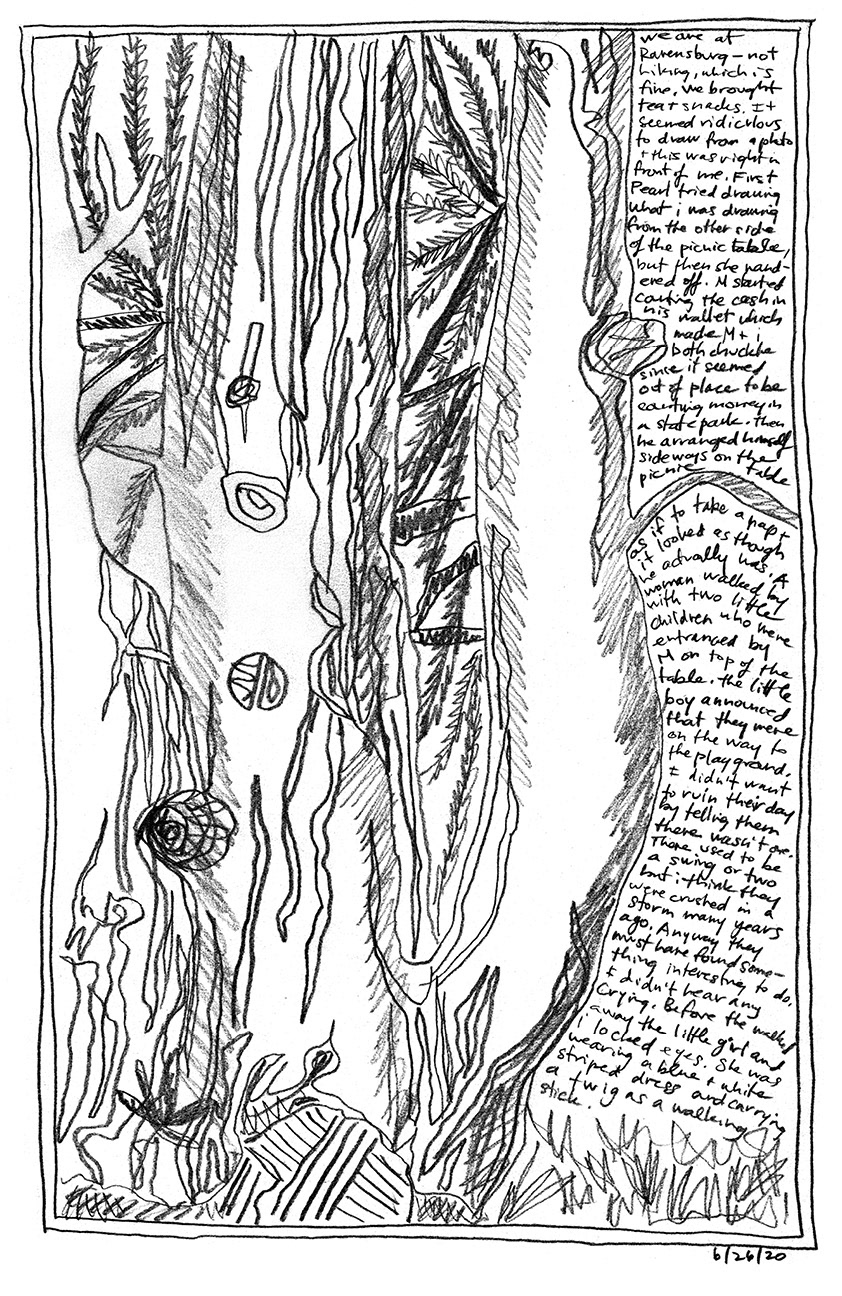 we are at
Ravensburg - not
hiking, which is
fine. We brought
tea + snacks. It
seemed ridiculous
to draw from a photo
+ this was right in
front of me. First
Pearl tried drawing
what i was drawing
from the other side
of the picnic table,
but then she wand-
ered off. M started
counting the cash in
his wallet which
made M + i
both chuckle
since it seemed
out of place to be
counting money in
a state park. Then
he arranged himself
sideways on the
picnic table
as if to take a nap +
it looked as though
he actually was. A
woman walked by
with two little
children who were
entranced by
M on top of the
table. the little
boy announced
that they were
on the way to
the playground.
I didn't want
to ruin their day
by telling them
there wasn't one.
There used to be
a swing or two
but i think they
were crushed in a
storm many years
ago. Anyway they
must have found some-
thing interesting to do.
I didn't hear any
crying. Before the walked
away the little girl and
i locked eyes. She was
wearing a blue + white
striped dress and carrying
a twig as a walking
stick.
6/26/20